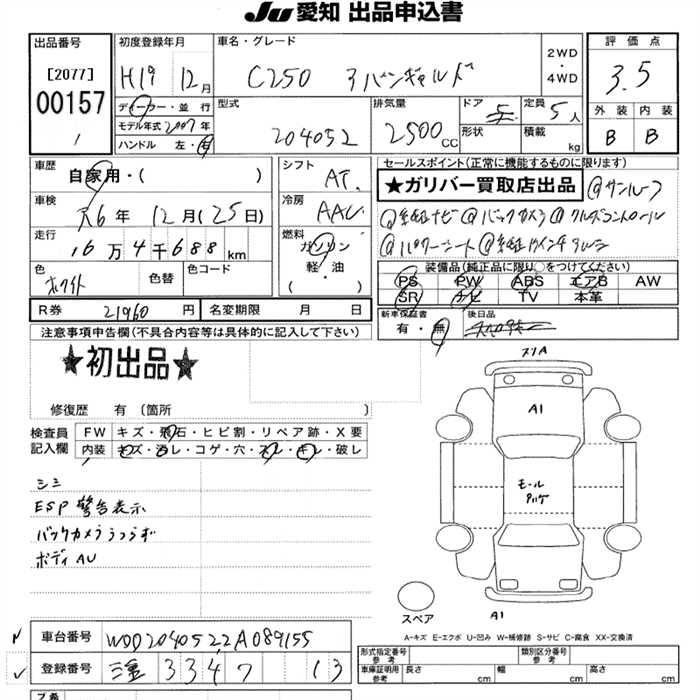 JU 愛知 出品申込書
出品番号
[2077]
00157
初度登録年月
H19 12月
車名・グレード
C250 アバンギャルド
2WD
・
4WD
評価点
3.5
外装 内装
B B
ディーラー・並行
モデル年式 2007年
ハンドル 左・右
型式
204052
排気量
2500 CC
ドア 5
形状
定員 5人
積載 kg
車歴
自家用・( )
車検
R6年 12月(25日)
走行
16万4千688km
色
ホワイト
色替
色コード
シフト
AT
冷房
AAC
燃料
ガソリン
軽・油
( )
セールスポイント(正常に機能するものに限ります)
★ガリバー買取店出品 @サンルーフ
@純正ナビ @バックカメラ @クルーズコントロール
@パワーシート @純正17インチアルミ
装備品(純正品に限り○をつけてください)
PS PW ABS エアB AW
SR ナビ TV 本革
R券 21960円 名変期限 月 日
新車保証書
有・無
後日品
注意事項申告欄(不具合内容等は具体的に記入して下さい)
★初出品★
修復歴 有 〔箇所 〕
検査員
記入欄
FW キズ・飛石・ヒビ割・リペア跡・X要
内装 キズ・汚レ・コゲ・穴・スレ・キレ・破レ
シミ
ESP警告表示
バックカメラうつらず
ボディAU
スリA
A1
モール
A1
スペア
A-キズ E-エクボ U-凹み W-補修跡 S-サビ C-腐食 XX-交換済
車台番号 WDD2040522A089155
登録番号 三重 334 7 13
形式指定番号
参考
類別区分番号
参考
車庫証明用
参考
長さ cm 幅 cm 高さ cm